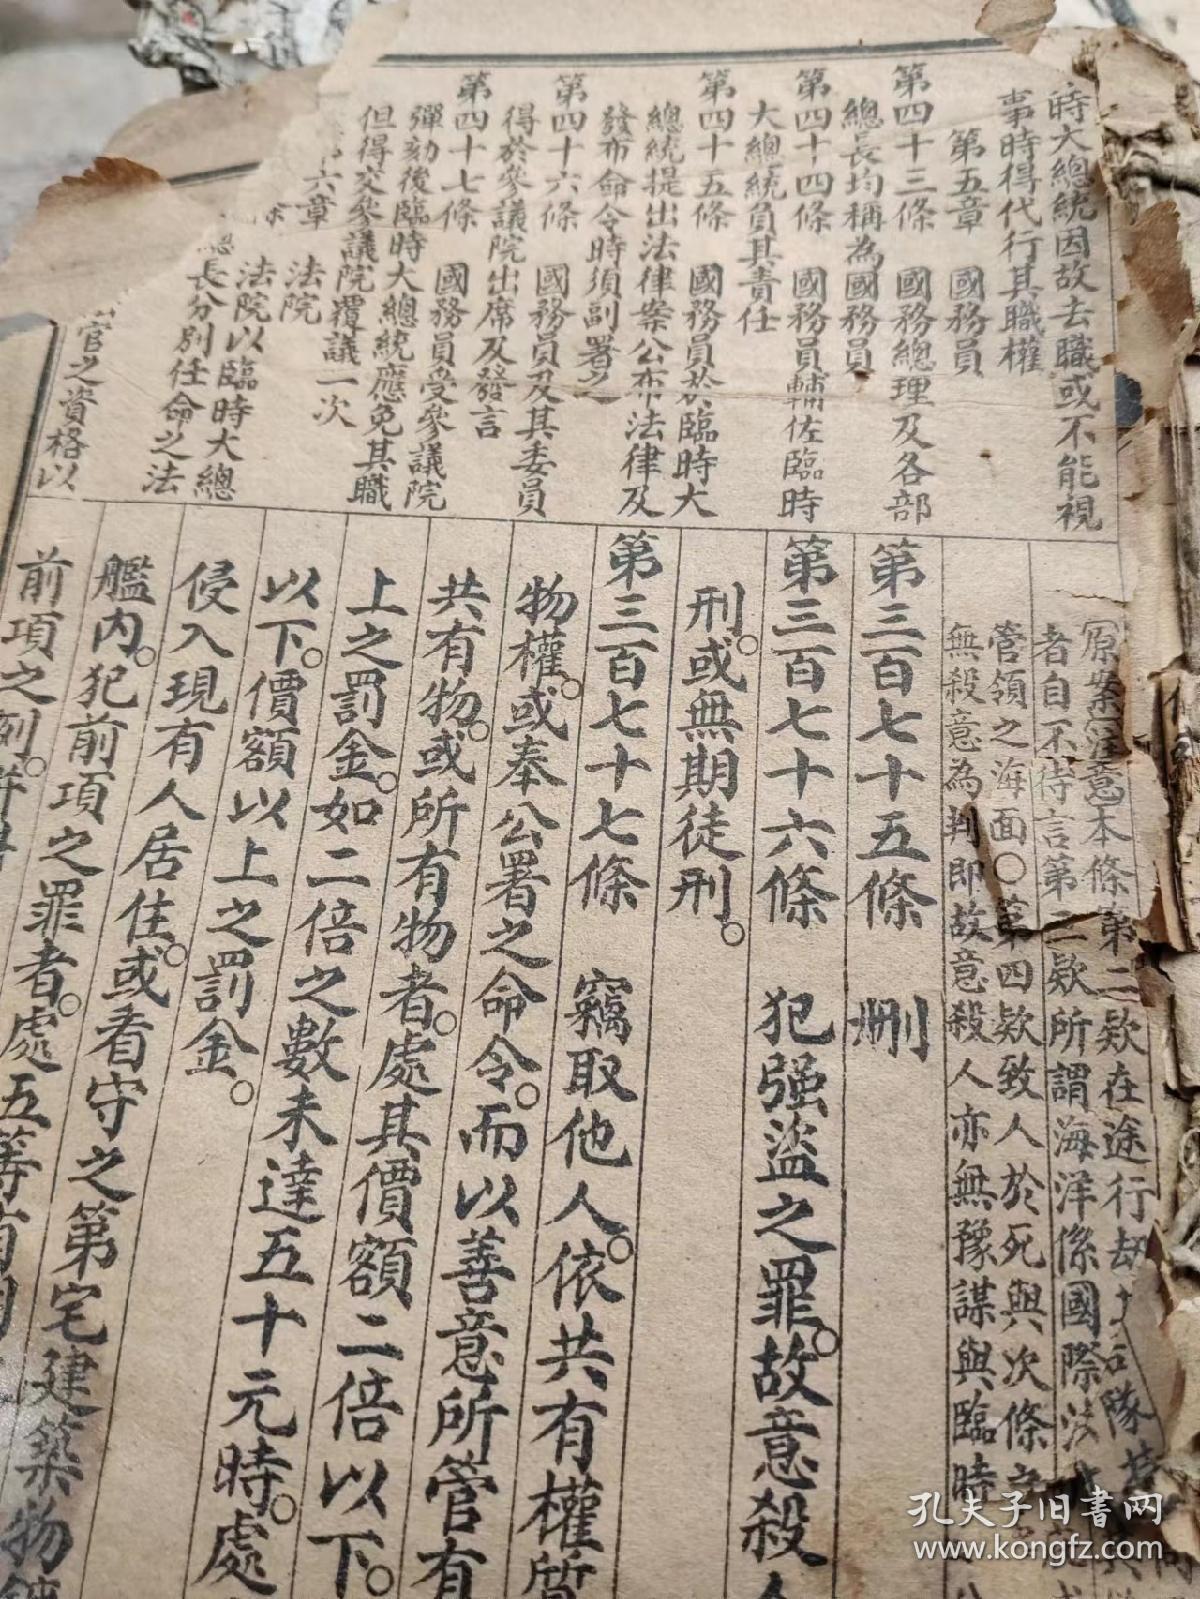 時大總統因故去職或不能視
事時得代行其職權
第五章　國務員
第四十三條　國務總理及各部
總長均稱為國務員
第四十四條　國務員輔佐臨時
大總統負其責任
第四十五條　國務員於臨時大
總統提出法律案公布法律及
發布命令時須副署之
第四十六條　國務員及其委員
得於參議院出席及發言
第四十七條　國務員受參議院
彈劾後臨時大總統應免其職
但得交參議院覆議一次
六章　法院
法院以臨時大總
總長分別任命之法
官之資格以
〔原案〕〔注意〕本條第二欵在途行劫
者自不待言第二欵所謂海洋係國際
管領之海面○第四欵致人於死與次條之
無殺意為判即故意殺人亦無豫謀與臨時
第三百七十五條　刪
第三百七十六條　犯强盜之罪。故意殺人
刑。或無期徒刑。
第三百七十七條　竊取他人。依共有權質
物權。或奉公署之命令。而以善意所管有
共有物。或所有物者。處其價額二倍以下。
上之罰金。如二倍之數未達五十元時。處
以下。價額以上之罰金。
侵入現有人居住。或看守之第宅建築物
艦內。犯前項之罪者。處五等有
前項之例。
孔夫子旧书网
www.kongfz.com